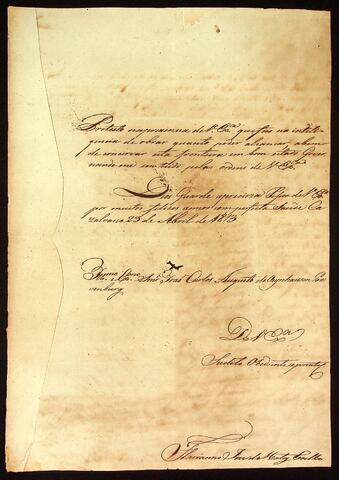 Protesto na presença de V. Exª. que fico na intelegencia
de obrar quanto poder alcansar abem
de conservar esta fronteira em bom estado Gover
nando me em tudo pelas ordens de V. Exª.
Ds. Guarde a preciosa Pesoa de V. Exª.
por muitos felices annos com perfeita Saude Ca
zalvasco 23 de Abril de 1813
Illmo. e Exmo. Snr. João Carlos Augusto de Oeynhausen Gre
venburg
De V. Exª.
Subdito Obediente